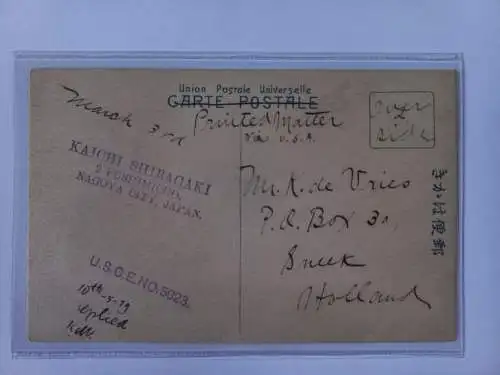 Union Postale Universelle
CARTE POSTALE
Printed Matter
via U.S.A.
over
side
March 3rd
KAICHI SHIBAGAKI
NAGOYA CITY, JAPAN.
U.S.C.E.NO.5023.
10th-5-29
replied
Mr. K. de Vries
P.O. Box 31
Sneek
Holland
きかは便郵